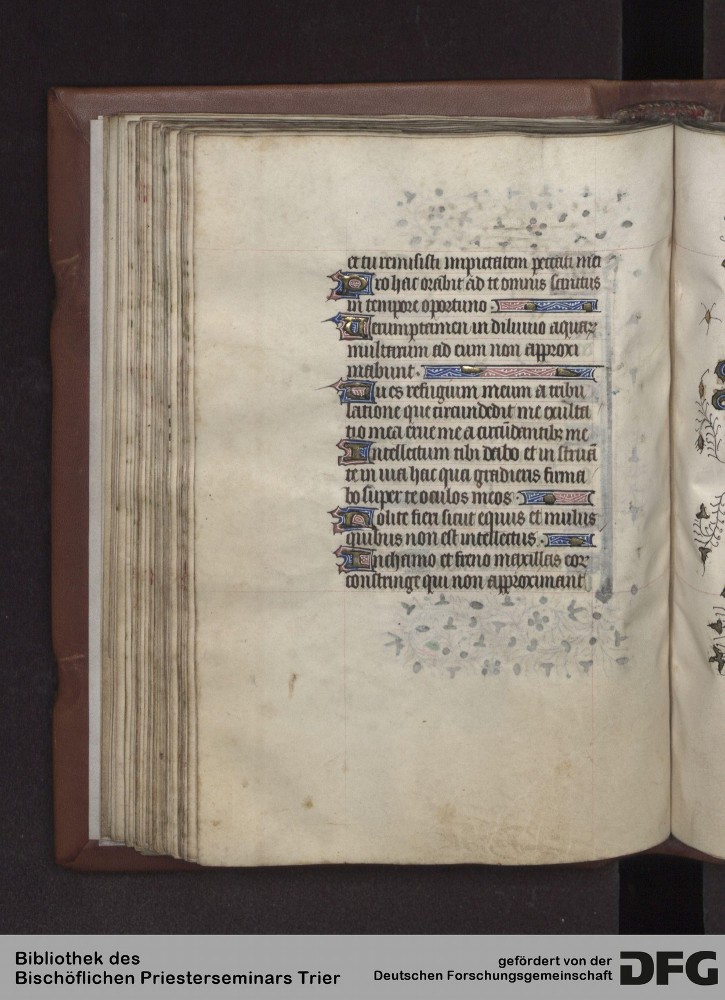 et tu remisisti impietatem peccati mei
Pro hac orabit ad te omnis sanctus
in tempore oportuno.
Verumptamen in diluuio aquaꝝ
multarum ad eum non approxi
mabunt.
Tu es refugium meum a tribu
latione que circundedit me exulta
tio mea erue me a circūdantibꝫ me
Intellectum tibi dabo et in struā
te in uia hac qua gradieris firma
bo super te oculos meos.
Nolite fieri sicut equus et mulus
quibus non est intellectus.
In chamo et freno maxillas eoꝝ
constringe qui non approximant
Bibliothek des
Bischöflichen Priesterseminars Trier
gefördert von der
Deutschen Forschungsgemeinschaft
DFG